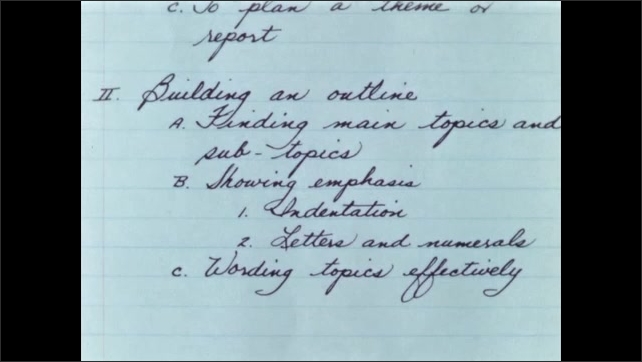 C. To plan a theme or
report
II. Building an outline
A. Finding main topics and
sub-topics
B. Showing emphasis
1. Indentation
2. Letters and numerals
C. Wording topics effectively